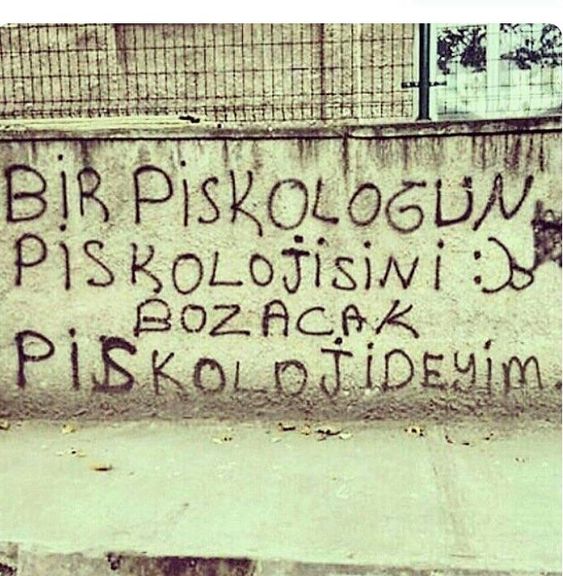 BİR PİSKOLOGUN
PİSKOLOJİSİNİ :)
BOZACAK
PİSKOLOJİDEYİM.